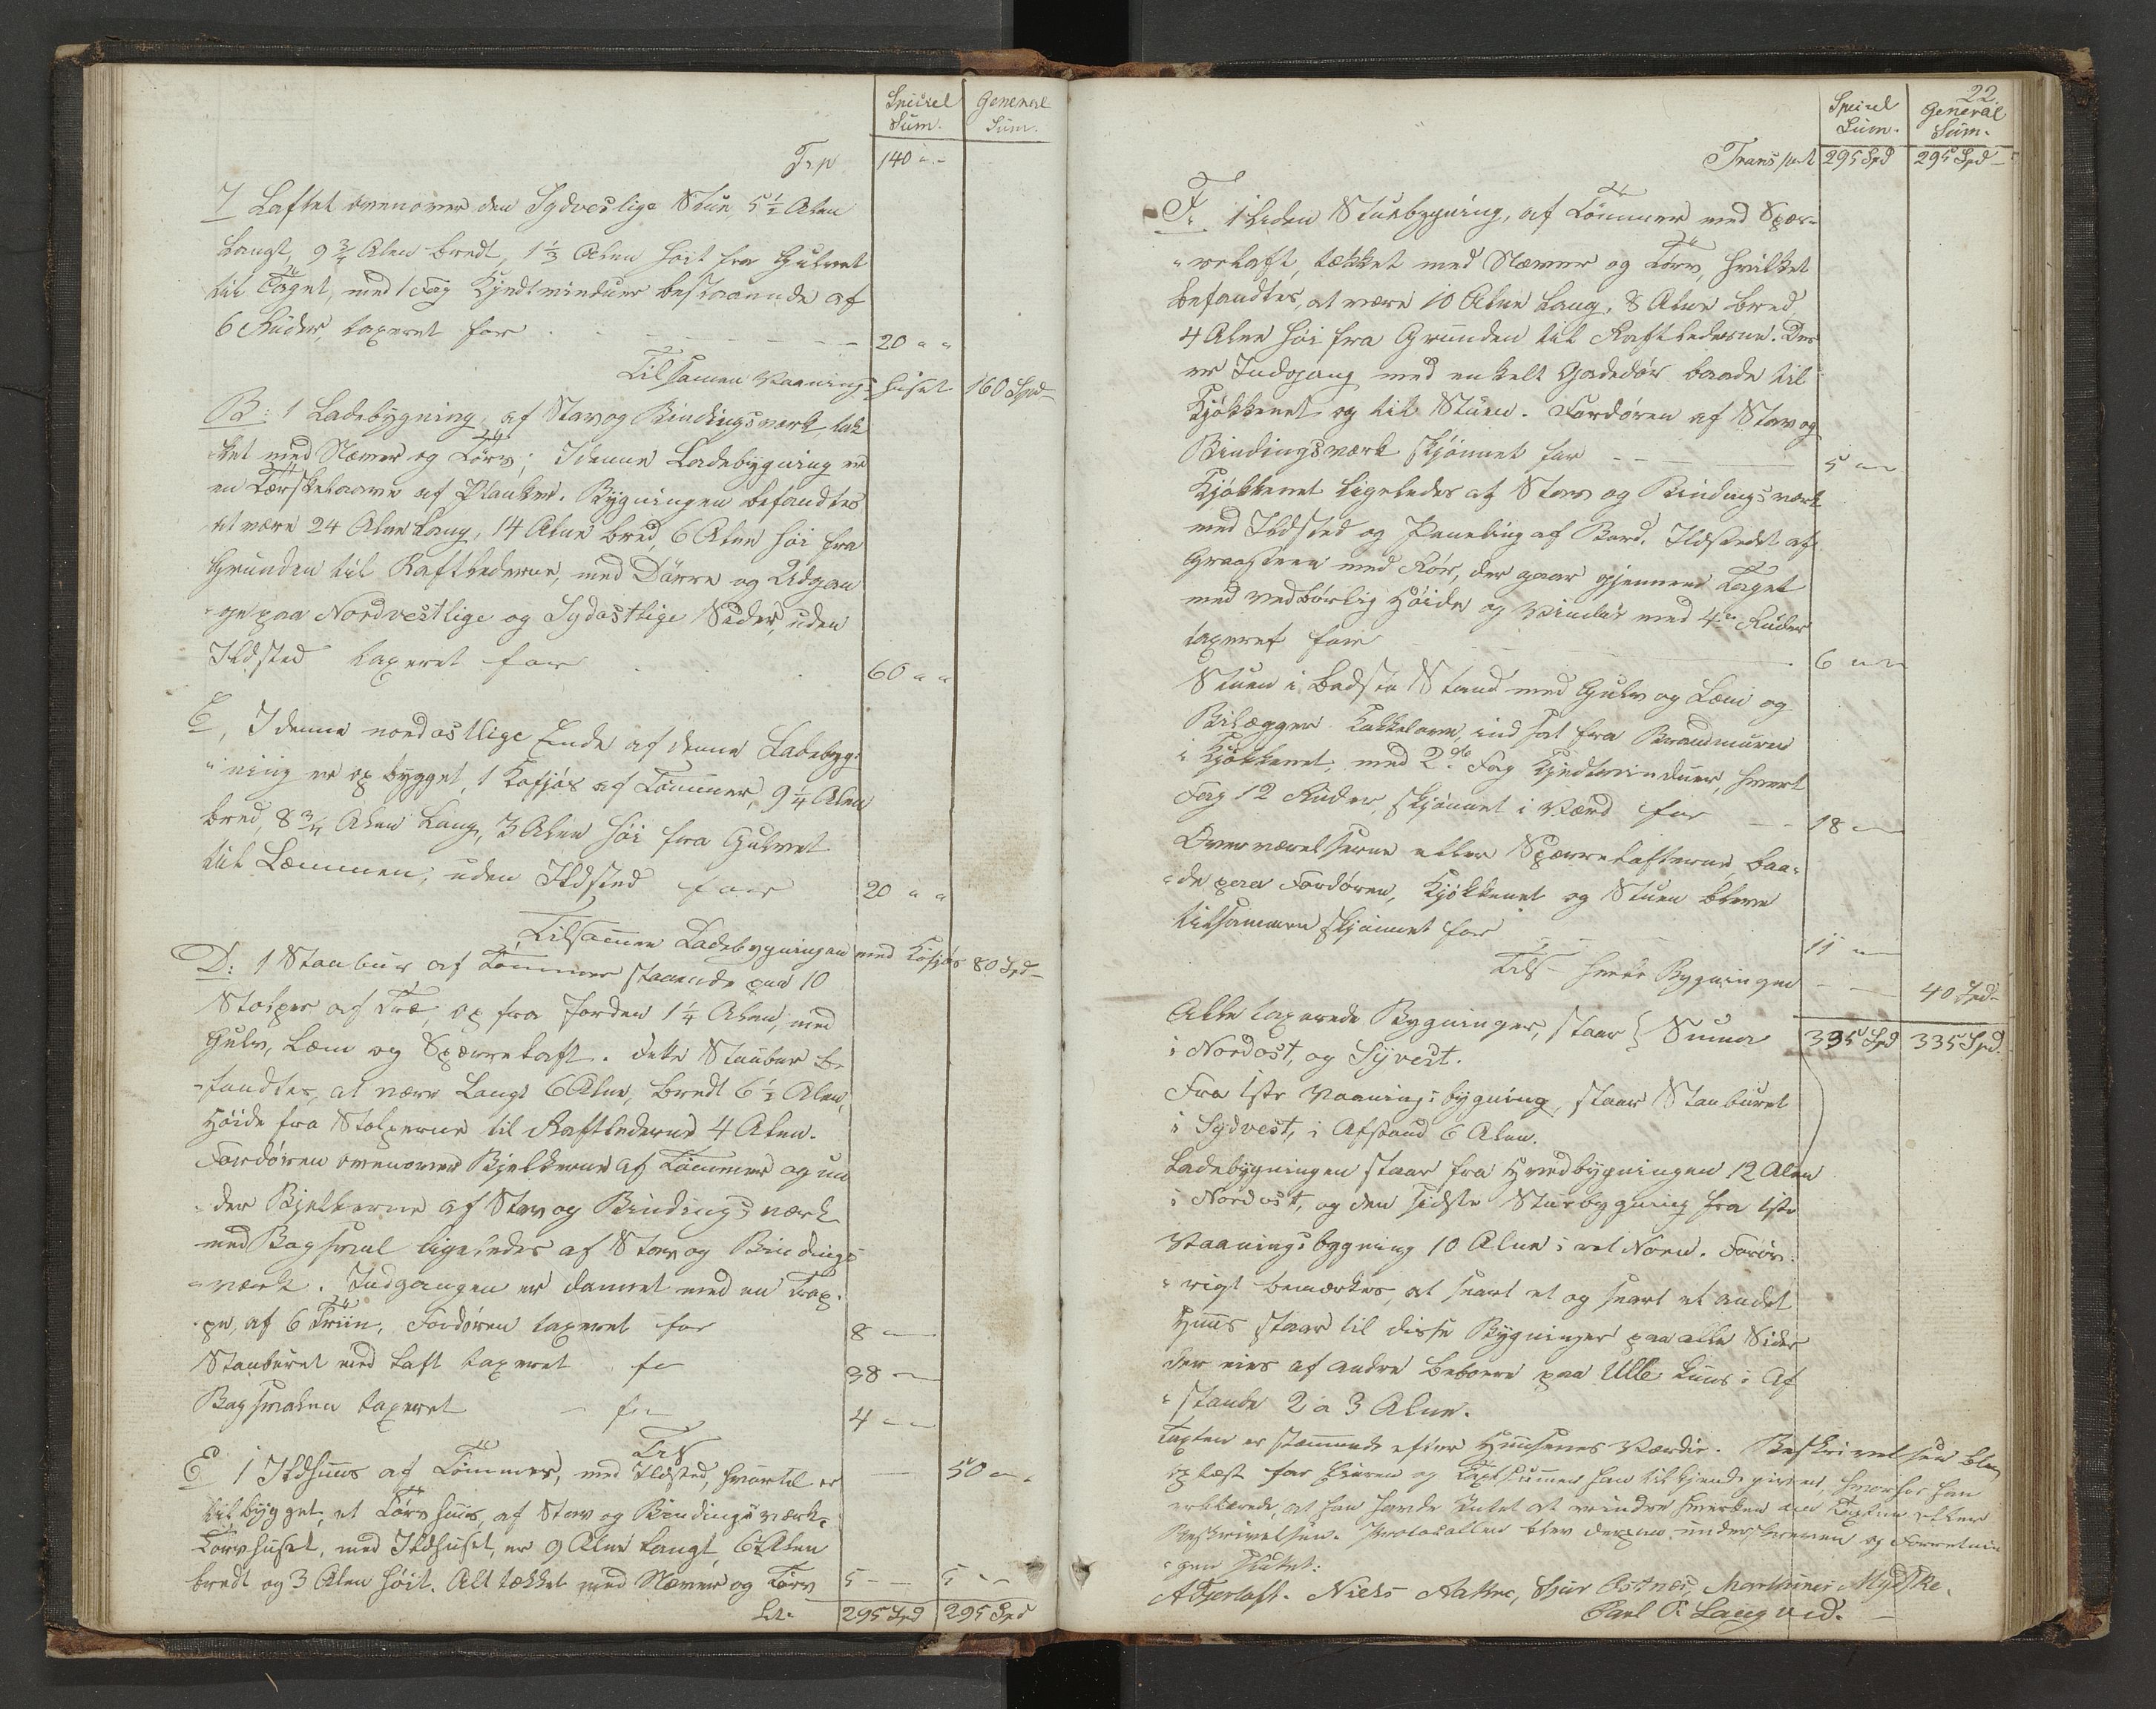 Speciel Sum. General Sum.
Trp 140 " "
7 Loftet ovenover den Sydvestlige Stue, 5 1/2 Alen
langt, 9 3/4 Alen bredt, 1 1/3 Alen høit fra Gulvet
til Taget, med 1 Fag Hjedtvinduer bestaaende af
6 Ruder, taxeret for 20 " "
Tilsamen Vaanings huset 160 Spd
B: 1 Ladebygning af Stav og Bindingsværk, tæk
ket med Næver og Törv; I denne Ladebygning er
en Tærskelaave af Planker. Bygningen befandtes
at være 24 Alne lang, 14 Alne bred, 6 Alne høi fra
Grunden til Raftlederne, med Dörre og Udgan
"ge paa Nordvestlige og Sydostlige Sider, uden
Ildsted taxeret for 60 " "
C, I denne nordostlige Ende af denne Ladebyg"
"ning er op bygget, 1 Kofjös af Tømmer, 9 1/4 Alen
bred, 8 3/4 Alen lang, 3 Alen høi fra Gulvet
til Læmmen, uden Ildsted for 20 " "
Tilsamen Ladebygningen med Kofjös 80 Spd
D: 1 Stanbur af Tømmer staaende paa 10
Stolper af Træ, op fra Jorden 1 1/4 Alen, med
Gulv, Læm og Sperreloft. Dette Stanbur be
"fandtes, at være langt 6 Alne, bredt 6 1/2 Alen,
Høide fra Stolperne til Raftlederne 4 Alen.
Fordören ovenover Bjelkerne af Tømmer og un
"der Bjelkerne af Stav og Bindings værk
med Bagsval ligeledes af Stav og Bindings
"værk. Indgangen er dannet med en Trap"
"pe, af 6 Trün, Fordören taxeret for 8
Stanburet med Loft taxeret for 38
Bagsvalen taxeret for 4
Tils 50
E 1 Ildhuus af Tömmer, med Ildsted, hvortil er
tilbygget, et Törvhuus, af Stav og Bindings værk.
Törvhuset, med Ildhuset, er 9 Alne langt, 6 1/2 Alen
bredt og 3 Alen høit. Alt tækket med Næver og Törv 5 5
Lit. 295 Spd 295 Spd
22.
Speciel Sum. General Sum.
Transport 295 Spd 295 Spd
F. 1 liden Stuebygning, af Tömmer med Spær"
"reloft, tækket med Næver og Törv, hvilket
befandtes, at være 10 Alne lang, 8 Alne bred,
4 Alne høi fra Grunden til Raftlederne. Der
er Indgang med enkelt Gadedör baade til
Kjökkenet og til Stuen. Fordören af Stav og
Bindingsværk skjönnet for 5
Kjökkenet ligeledes af Stav og Bindings værk
med Ildsted og Paneling af Bord. Ildstedet af
Graasteen med Rör, der gaar gjennem Taget
med vedbörlig Höide og Vindue med 4 Ruder
taxeret for 6
Stuen i bedste Stand med Gulv og Læm og
Bilægger Kakkelovn, ind sat fra Brandmuren
i Kjökkenet, med 2 do Fag Hjedtvinduer, hvert
Fag 12 Ruder, skjönnet i Værd for 18
Overværelserne eller Spærrelofterne, baa"
"de paa Fordören, Kjökkenet og Stuen bleve
tilsammen skjönnet for 11
Tils hele Bygningen 40 Spd
Alle taxerede Bygninger, staar } Summa 335 Spd 335 Spd.
i Nordost, og Sÿvest.
Fra 1ste Vaaningsbygning, staar Stanburet
i Sydvest, i Afstand 6 Alen.
Ladebygningen staar fra Hovedbygningen 12 Alen
i Nordost, og den sidste Stuebygning fra 1ste
Vaaningsbygning 10 Alne i ret Nord. Forøv"
"rigt bemærkes, at snart et og snart et andet
Huus staar til disse Bygninger paa alle Sider
der eies af andre Beboere paa Ulle Tuns i Af
"stande 2 a 3 Alne.
Taxten er stemmende efter Husenes Værdie. Beskrivelsen blev
oplæst for Eieren og Taxtsummen ham tilkjende given, hvorfor han
erklærede, at han havde Intet at erindre hverken om Taxten eller
Beskrivelsen. Protocollen blev derpaa underskreven og Forretnin
"gen sluttet:
A Tjerloft. Niels Aatne, Siur Ostnes, Marthines Mydske.
Carl P. Langved.